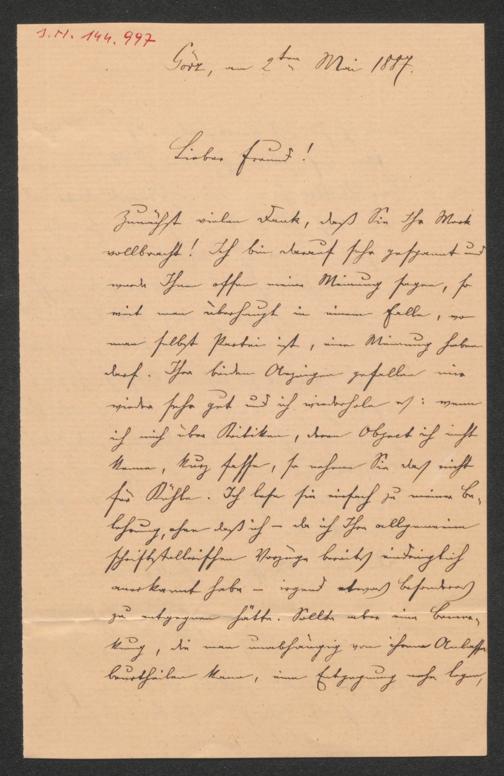 J.N. 144.997
Görz, am 2ten Mai 1887.
Lieber Freund!
Zunächst vielen Dank, daß Sie Ihr Werk
vollbracht! Ich bin darauf sehr gespannt und
werde Ihnen offen meine Meinung sagen, so
weit man überhaupt in einem Falle, wo
man selbst Partei ist, eine Meinung haben
darf. Ihre beiden Anzeigen gefallen mir
wieder sehr gut und ich wiederhole es: wenn
ich mich über Kritiken, deren Object ich nicht
kenne, kurz fasse, so nehmen Sie das nicht
für Kühle. Ich lese sie einfach zu meiner Be-
lehrung, ohne daß ich – da ich Ihre allgemeinen
schriftstellerischen Vorzüge bereits eindringlich
anerkannt habe – irgend etwas besonderes
zu entgegnen hätte. Sollte aber eine Bemer-
kung, die man unabhängig von ihrem Anlasse
beurtheilen kann, eine Entgegnung nahe legen,